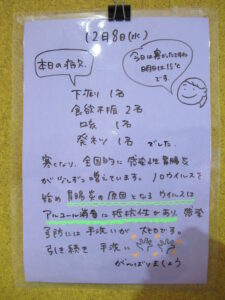 12月8日(水)
今日は寒かったですね
明日は15℃
です。
本日の様子
下痢 1名
食欲不振 2名
咳 1名
発熱 1名 でした。
寒くなり、全国的に感染性胃腸炎
が少しずつ増えています。ノロウイルスを
始め胃腸炎の原因となるウイルスは
アルコール消毒に抵抗性があり、感染
予防には手洗いが大切です。
引き続き 手洗い
がんばりましょう